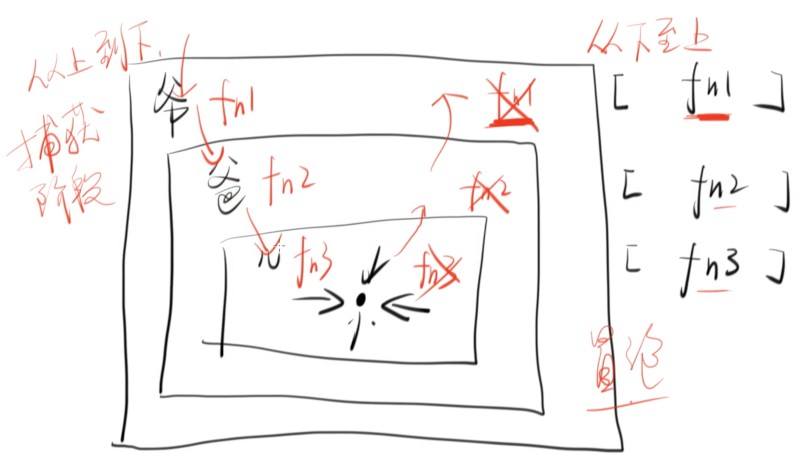 从上到下.
捕获
阶段
爷 fn1
爸 fn2
儿 fn3
fn1
fn2
fn3
从下至上
[ fn1 ]
[ fn2 ]
[ fn3 ]
冒泡